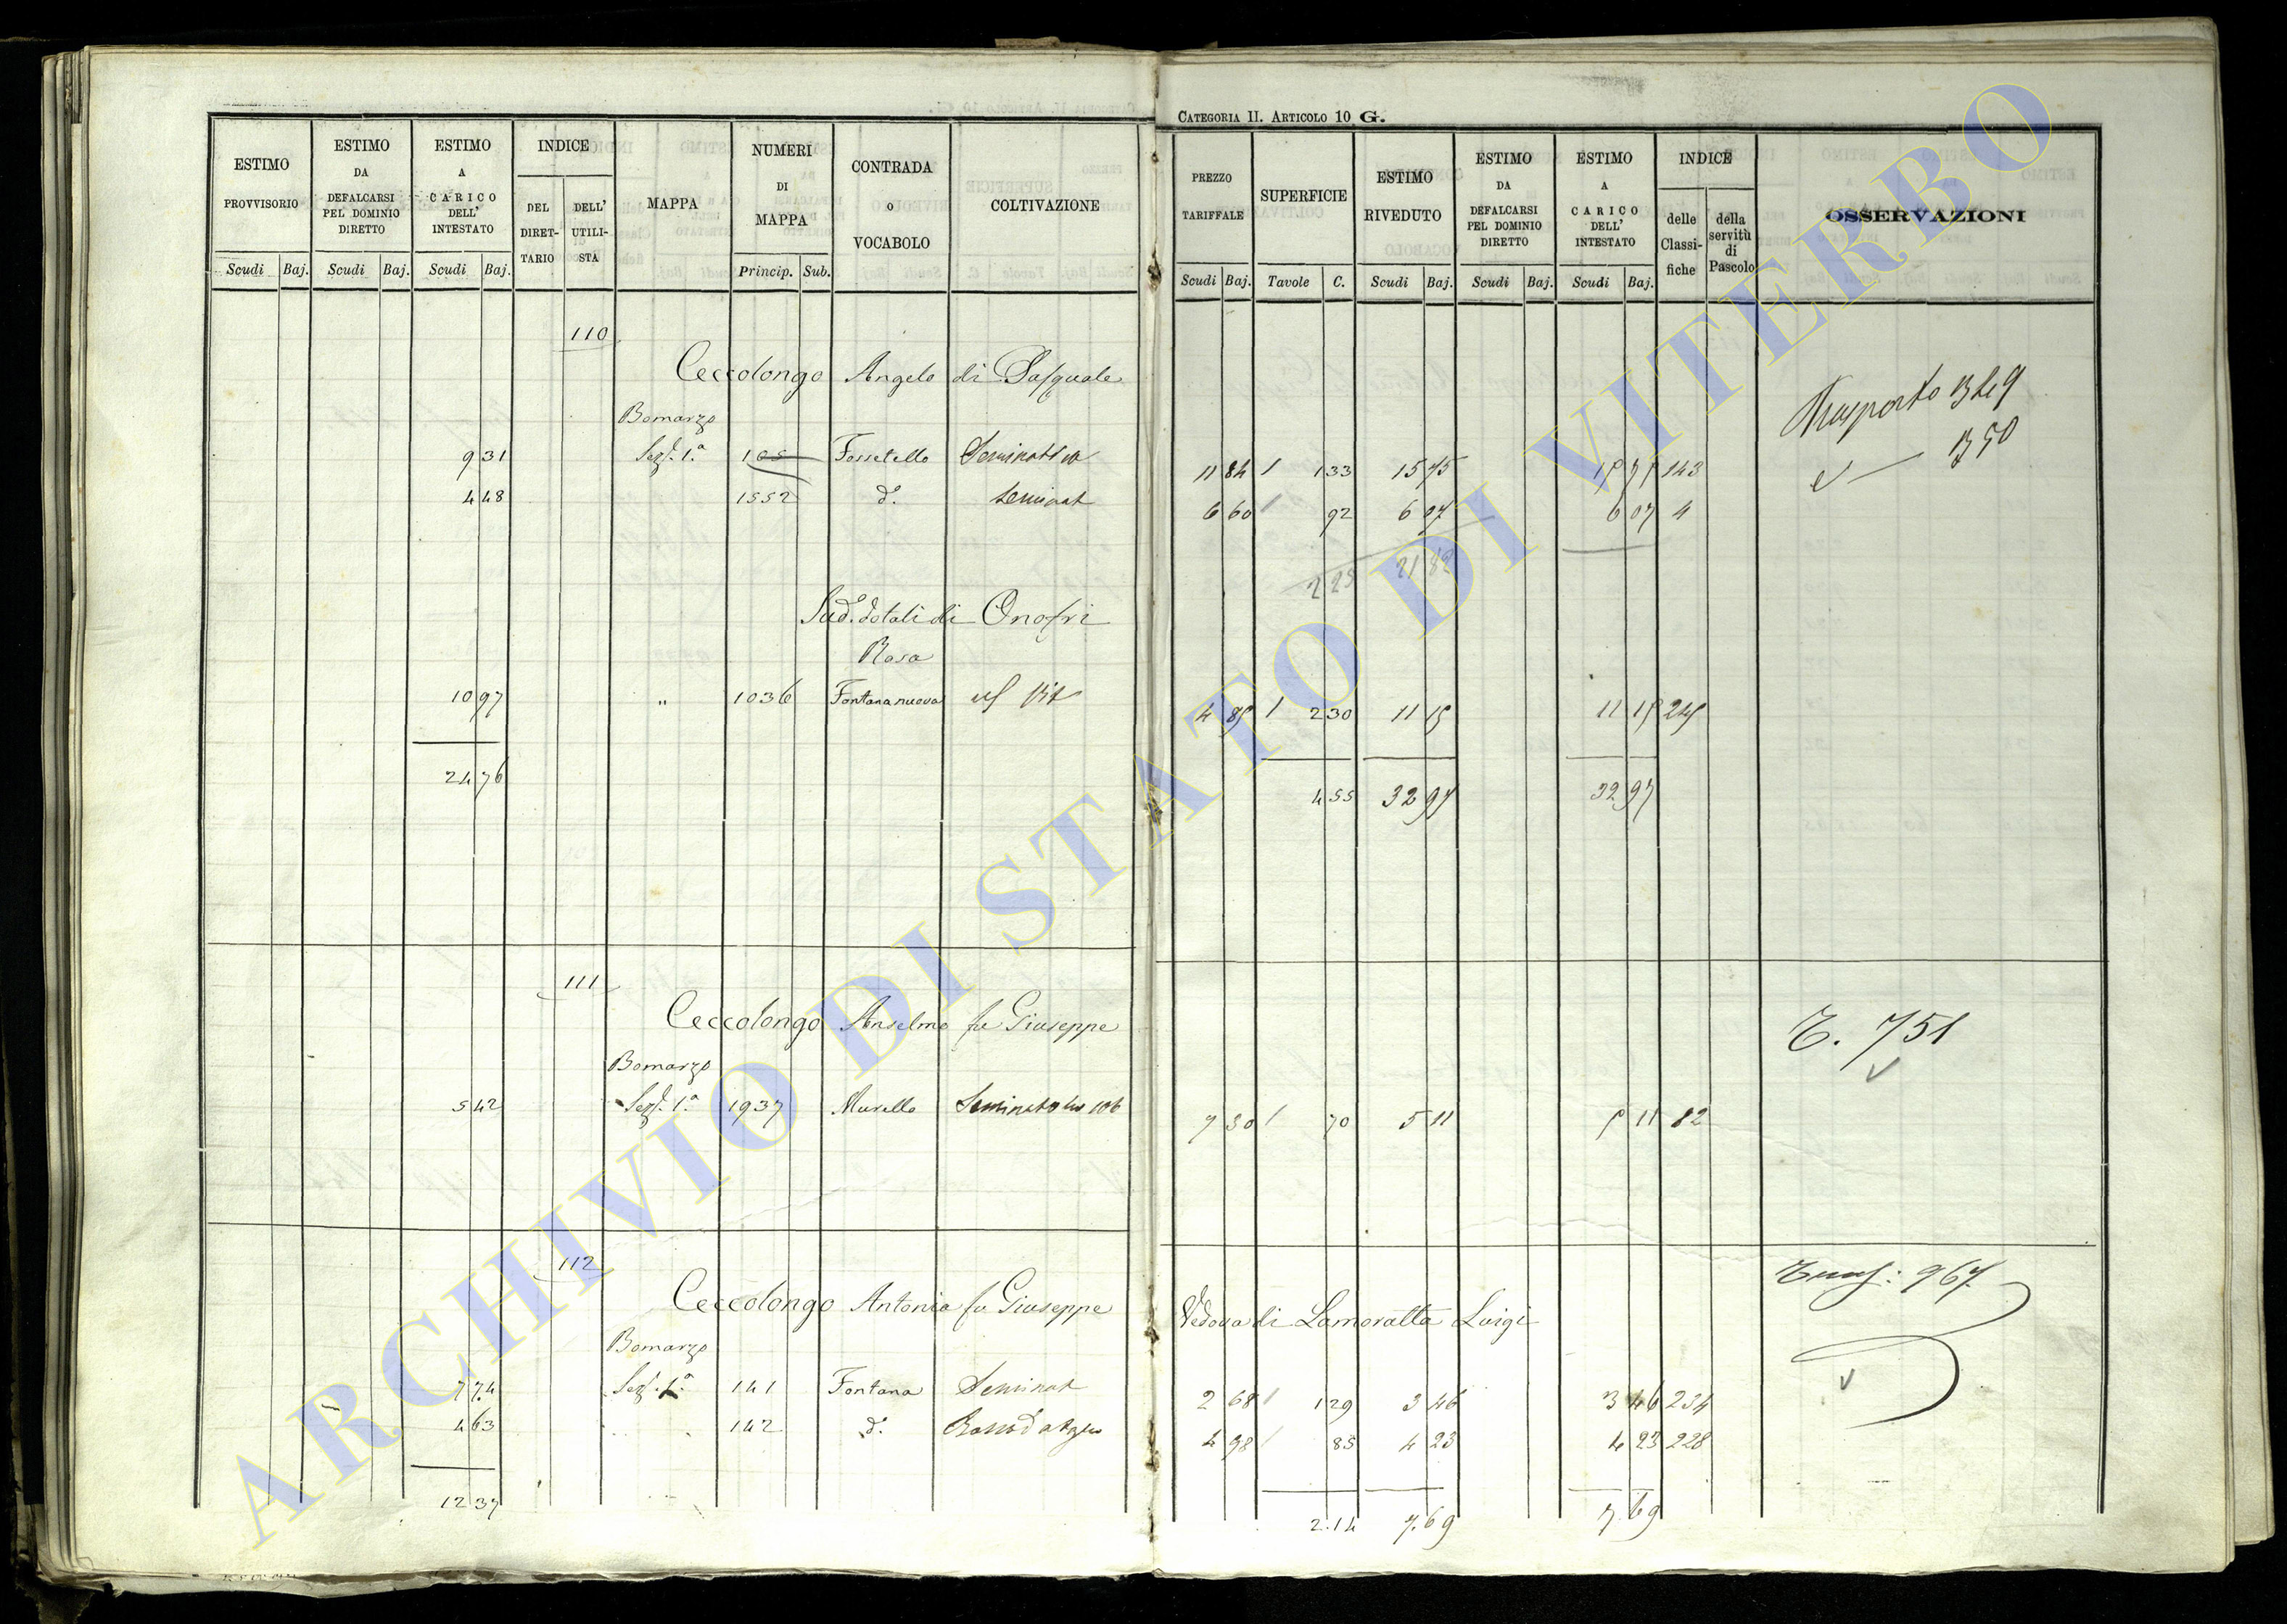 CATEGORIA II. ARTICOLO 10 G.
ESTIMO PROVVISORIO
ESTIMO DA DEFALCARSI PEL DOMINIO DIRETTO
ESTIMO A CARICO DELL' INTESTATO
INDICE
DEL DIRET-TARIO
DELL' UTILI-STA
MAPPA
NUMERI DI MAPPA
CONTRADA o VOCABOLO
COLTIVAZIONE
Scudi Baj. Scudi Baj. Scudi Baj. Princip. Sub.
110
Ceccolongo Angelo di Pasquale
Bomarzo
9 31 Sez. 1.ª Fossetello Seminativo
4 48 1552 d.º Seminat
Sud. dotali di Onofri
Rosa
10 97 " 1036 Fontana nuova
24 76
111
Ceccolongo Anselmo fu Giuseppe
Bomarzo
5 42 Sez. 1.ª 1937 Murello
112
Ceccolongo Antonia fu Giuseppe
Bomarzo
7 74 Sez. 1.ª 141 Fontana Seminat
4 63 142 d.º
12 37
PREZZO TARIFFALE
SUPERFICIE
ESTIMO RIVEDUTO
ESTIMO DA DEFALCARSI PEL DOMINIO DIRETTO
ESTIMO A CARICO DELL' INTESTATO
INDICE
delle Classi-fiche
della servitù di Pascolo
OSSERVAZIONI
Scudi Baj. Tavole C. Scudi Baj. Scudi Baj. Scudi Baj.
Trasporto 1349
1350
11 84 1 33 15 75 15 75 143
6 60 92 6 07 6 07 4
2 25 21 82
4 85 2 30 11 15 11 15 245
4 55 32 97 32 97
T. 751
7 30 70 5 11 5 11 82
967
Vedova di Lamoratta Luigi
2 68 1 29 3 46 3 46 234
4 98 85 4 23 4 23 228
2.14 7.69 7.69
ARCHIVIO DI STATO DI VITERBO